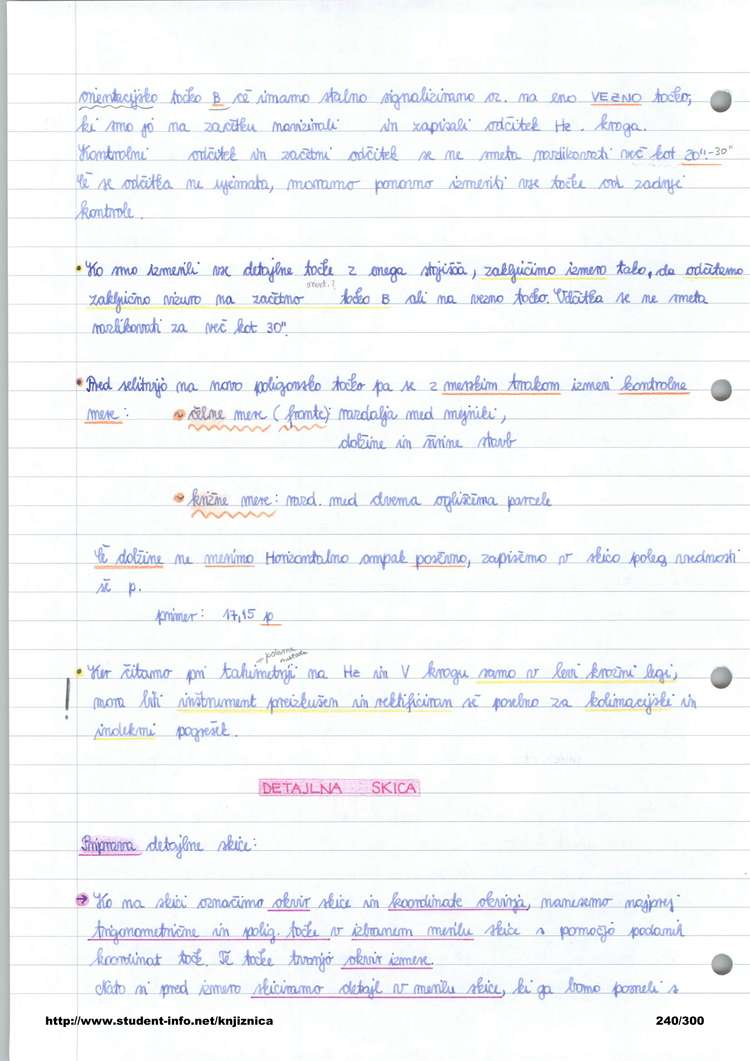 orientacijsko točko B če imamo stalno signalizirano oz. na eno VEZNO točko,
ki smo jo na začetku navizirali in zapisali odčitek Hz. kroga.
Kontrolni odčitek in začetni odčitek se ne smeta razlikovati več kot 20"-30"
Če se odčitka ne ujemata, moramo ponovno izmeriti vse točke od zadnje
kontrole.
• Ko smo izmerili vse detajlne točke z enega stojišča, zaključimo izmero tako, da odčitamo
orient.?
zaključno vizuro na začetno točko B ali na vezno točko. Odčitka se ne smeta
razlikovati za več kot 30".
• Pred selitvijo na novo poligonsko točko pa se z merskim trakom izmeri kontrolne
mere: čelne mere (fronte): razdalja med mejniki,
dolžine in širine stavb
križne mere: razd. med dvema ogliščima parcele
Če dolžine ne merimo Horizontalno ampak poševno, zapišemo v skico poleg vrednosti
še p.
primer: 17,15 p
→ polarna metoda
• Ker čitamo pri tahimetriji na Hz in V krogu samo v levi krožni legi,
! mora biti inštrument preizkušen in rektificiran še posebno za kolimacijski in
indeksni pogrešek.
DETAJLNA SKICA
Priprava detajlne skice:
→ Ko na skici označimo okvir skice in koordinate okvirja, nanesemo najprej
trigonometrične in polig. točke v izbranem merilu skice s pomočjo podanih
koordinat točk. Te točke tvorijo okvir izmere.
Nato si pred izmero skiciramo detajl v merilu skice, ki ga bomo posneli s
http://www.student-info.net/knjiznica 240/300